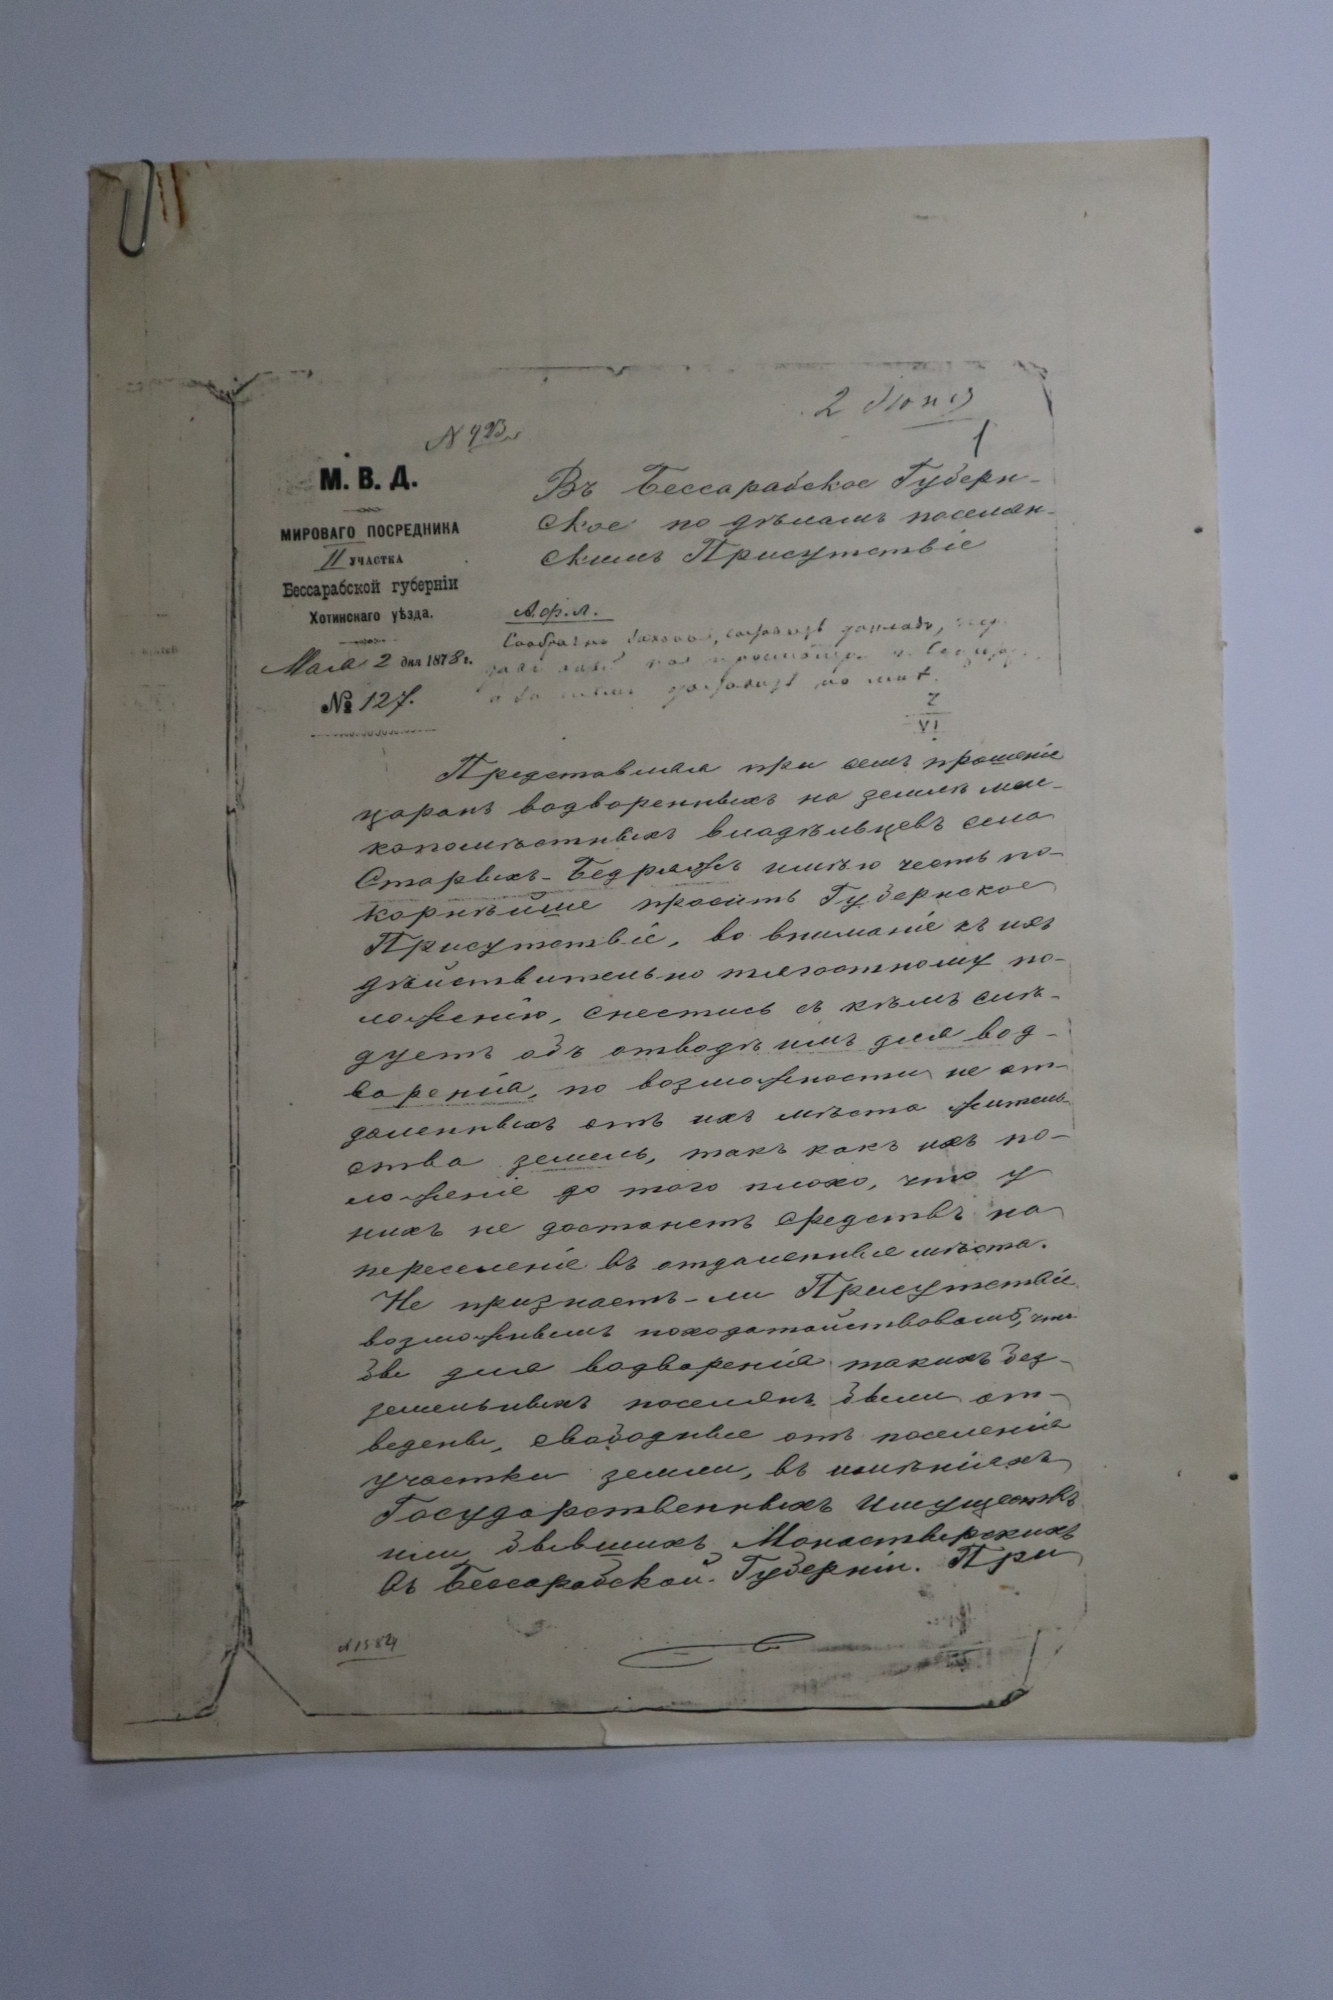 2 Іюня
1
N 493
М. В. Д.
МИРОВАГО ПОСРЕДНИКА
II УЧАСТКА
Бессарабской губерніи
Хотинскаго уѣзда.
Мая 2 дня 1878 г.
№ 127.
Въ Бессарабское Губерн-
ское по дѣламъ поселян-
скимъ Присутствіе
2
VI
Представляя при семъ прошеніе
царанъ водворенныхъ на землѣ мел-
копомѣстныхъ владѣльцевъ села
Старыхъ-Бедряжъ имѣю честь по-
корнѣйше просить Губернское
Присутствіе, во вниманіе къ ихъ
дѣйствительно тягостному по-
ложенію, снестись съ кѣмъ слѣ-
дуетъ объ отводѣ имъ для вод-
воренія, по возможности не от-
даленныхъ отъ ихъ мѣста житель-
ства земель, такъ какъ ихъ по-
ложеніе до того плохо, что у
нихъ не достанетъ средствъ на
переселеніе въ отдаленныя мѣста.
Не признаетъ-ли Присутствіе
возможнымъ походатайствовать, что
бы для водворенія такихъ без-
земельныхъ поселянъ были от-
ведены, свободные отъ поселенія
участки земли, въ имѣніяхъ
Государственныхъ Имуществъ
или бывшихъ Монастырскихъ
въ Бессарабской Губерніи. При
N 1584